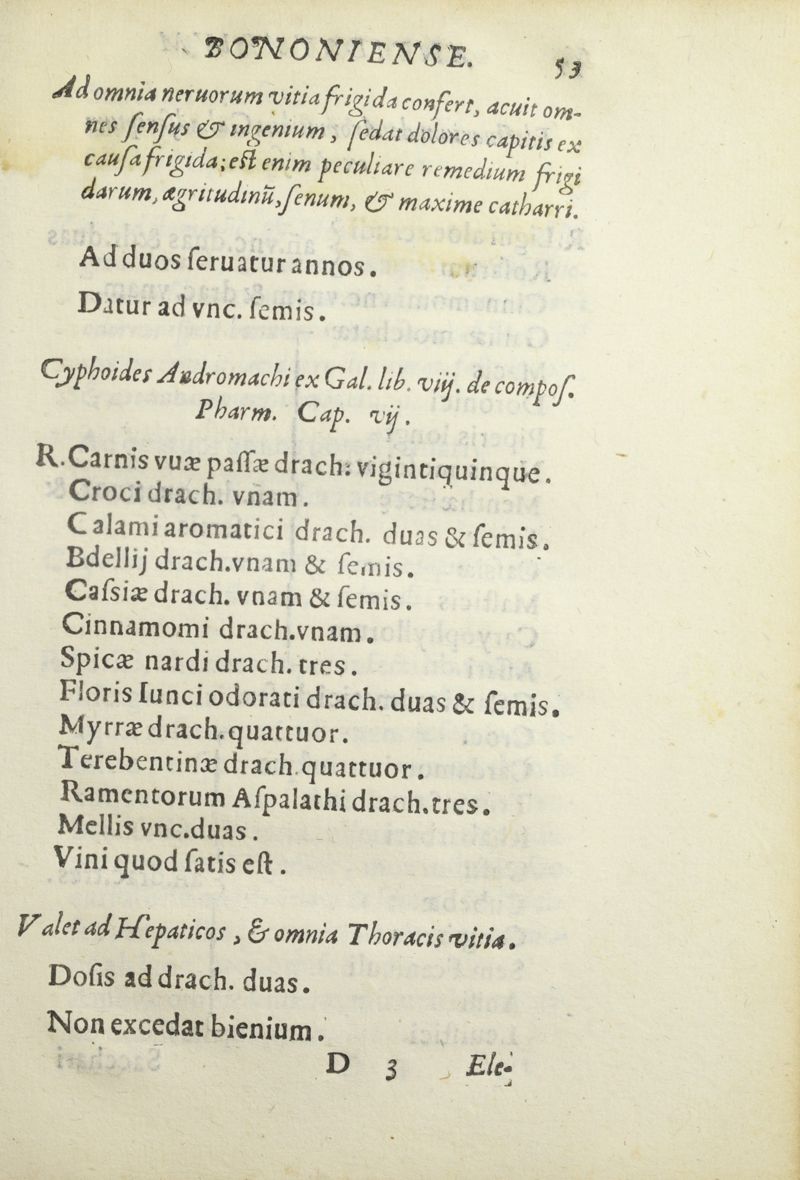 BONONIENSE. 53
Ad omnia neruorum vitia frigida confert, acuit om-
nes ſenſus & ingenium, ſedat dolores capitis ex
cauſa frigida; eſt enim peculiare remedium frigi
darum, ægritudinū, ſenum, & maxime catharri.
Ad duos ſeruatur annos.
Datur ad vnc. ſemis.
Cyphoides Andromachi ex Gal. lib. viij. de compoſ.
Pharm. Cap. vij.
R. Carnis vuæ paſſæ drach: vigintiquinque.
Croci drach. vnam.
Calami aromatici drach. duas & ſemis.
Bdellij drach.vnam & ſemis.
Caſsiæ drach. vnam & ſemis.
Cinnamomi drach.vnam.
Spicæ nardi drach. tres.
Floris Iunci odorati drach. duas & ſemis.
Myrræ drach.quattuor.
Terebentinæ drach.quattuor.
Ramentorum Aſpalathi drach.tres.
Mellis vnc.duas.
Vini quod ſatis eſt.
Valet ad Hepaticos, & omnia Thoracis vitia.
Doſis ad drach. duas.
Non excedat bienium.
D 3 Ele-